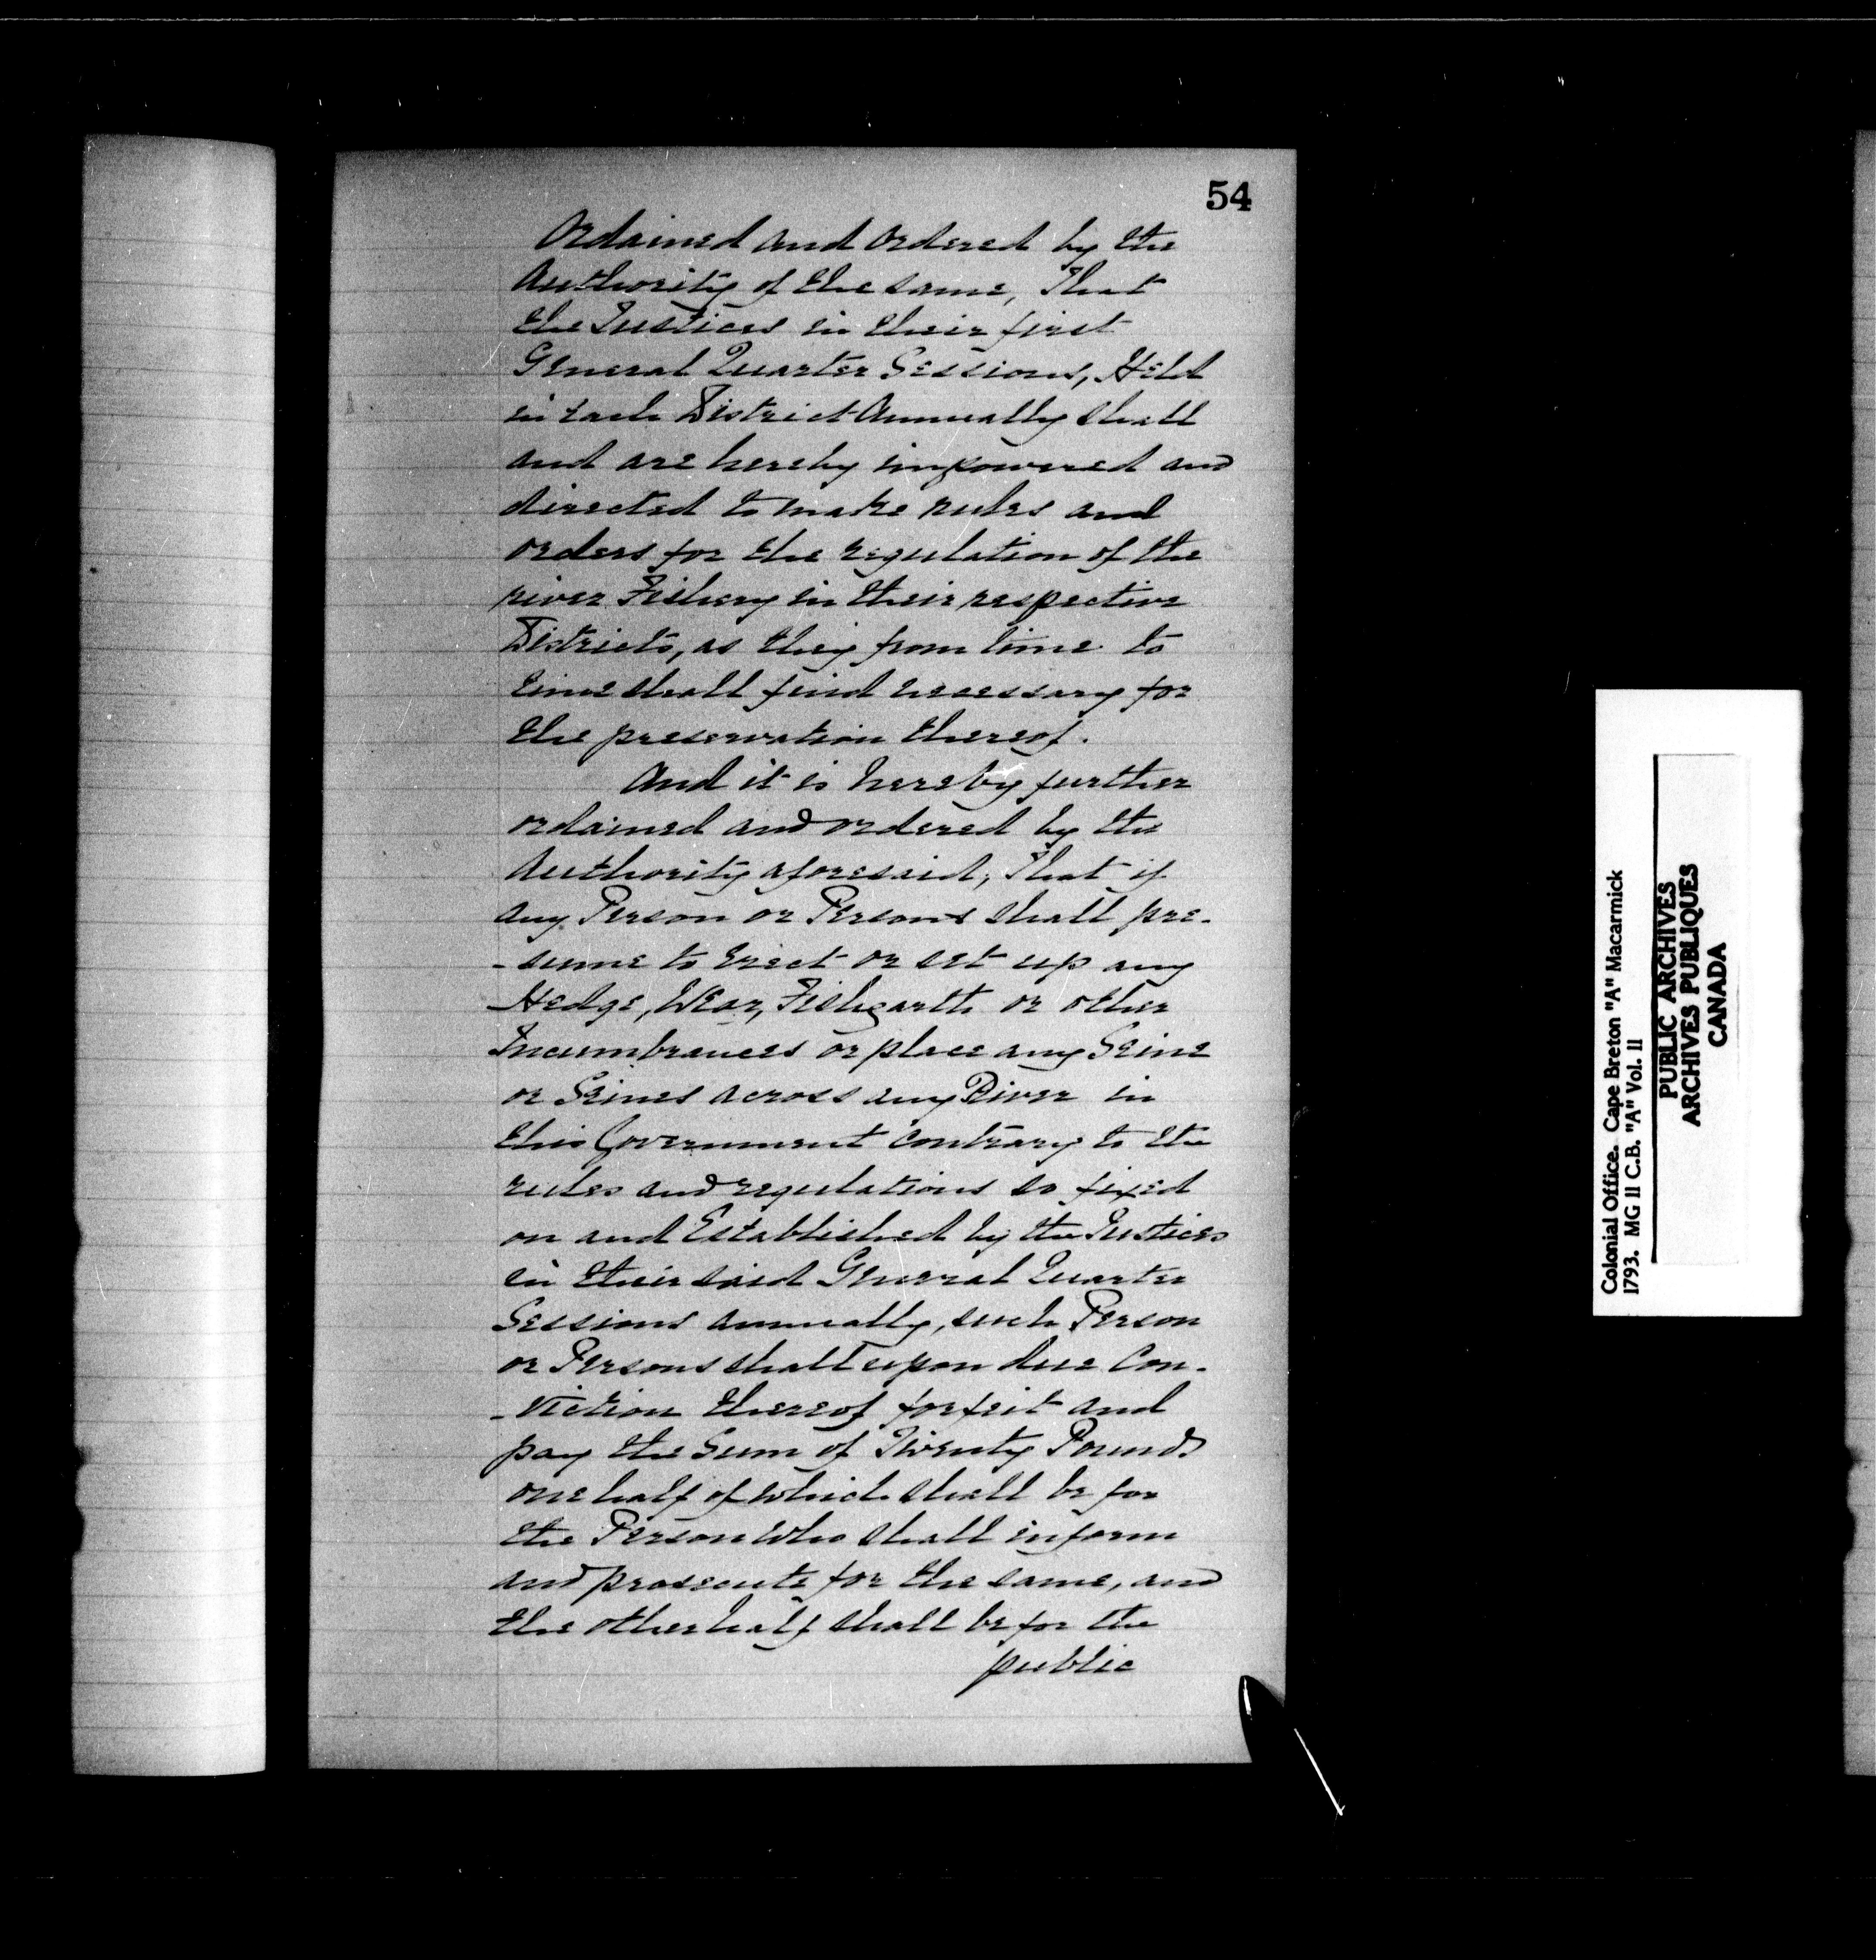 54
Ordained and Ordered by the
Authority of the same, That
the Justices in their first
General Quarter Sessions, Held
in each District Annually shall
and are hereby impowered and
directed to make rules and
orders for the regulation of the
river Fishery in their respective
Districts, as they from time to
time shall find necessary for
the preservation thereof.
And it is hereby further
ordained and ordered by the
Authority aforesaid, That if
any Person or Persons shall pre-
-sume to Erect or set up any
Hedge, Wear, Fishgarth or other
Incumbrances or place any Seine
or Seines across any River in
this Government contrary to the
rules and regulations so fixed
on and Established by the Justices
in their said General Quarter
Sessions annually, such Person
or Persons shall upon due Con-
-viction thereof forfeit and
pay the Sum of Twenty Pounds
one half of which shall be for
the Person who shall inform
and prosecute for the same, and
the other half shall be for the
public
Colonial Office. Cape Breton "A" Macarmick
1793. MG 11 C.B. "A" Vol. 11
PUBLIC ARCHIVES
ARCHIVES PUBLIQUES
CANADA